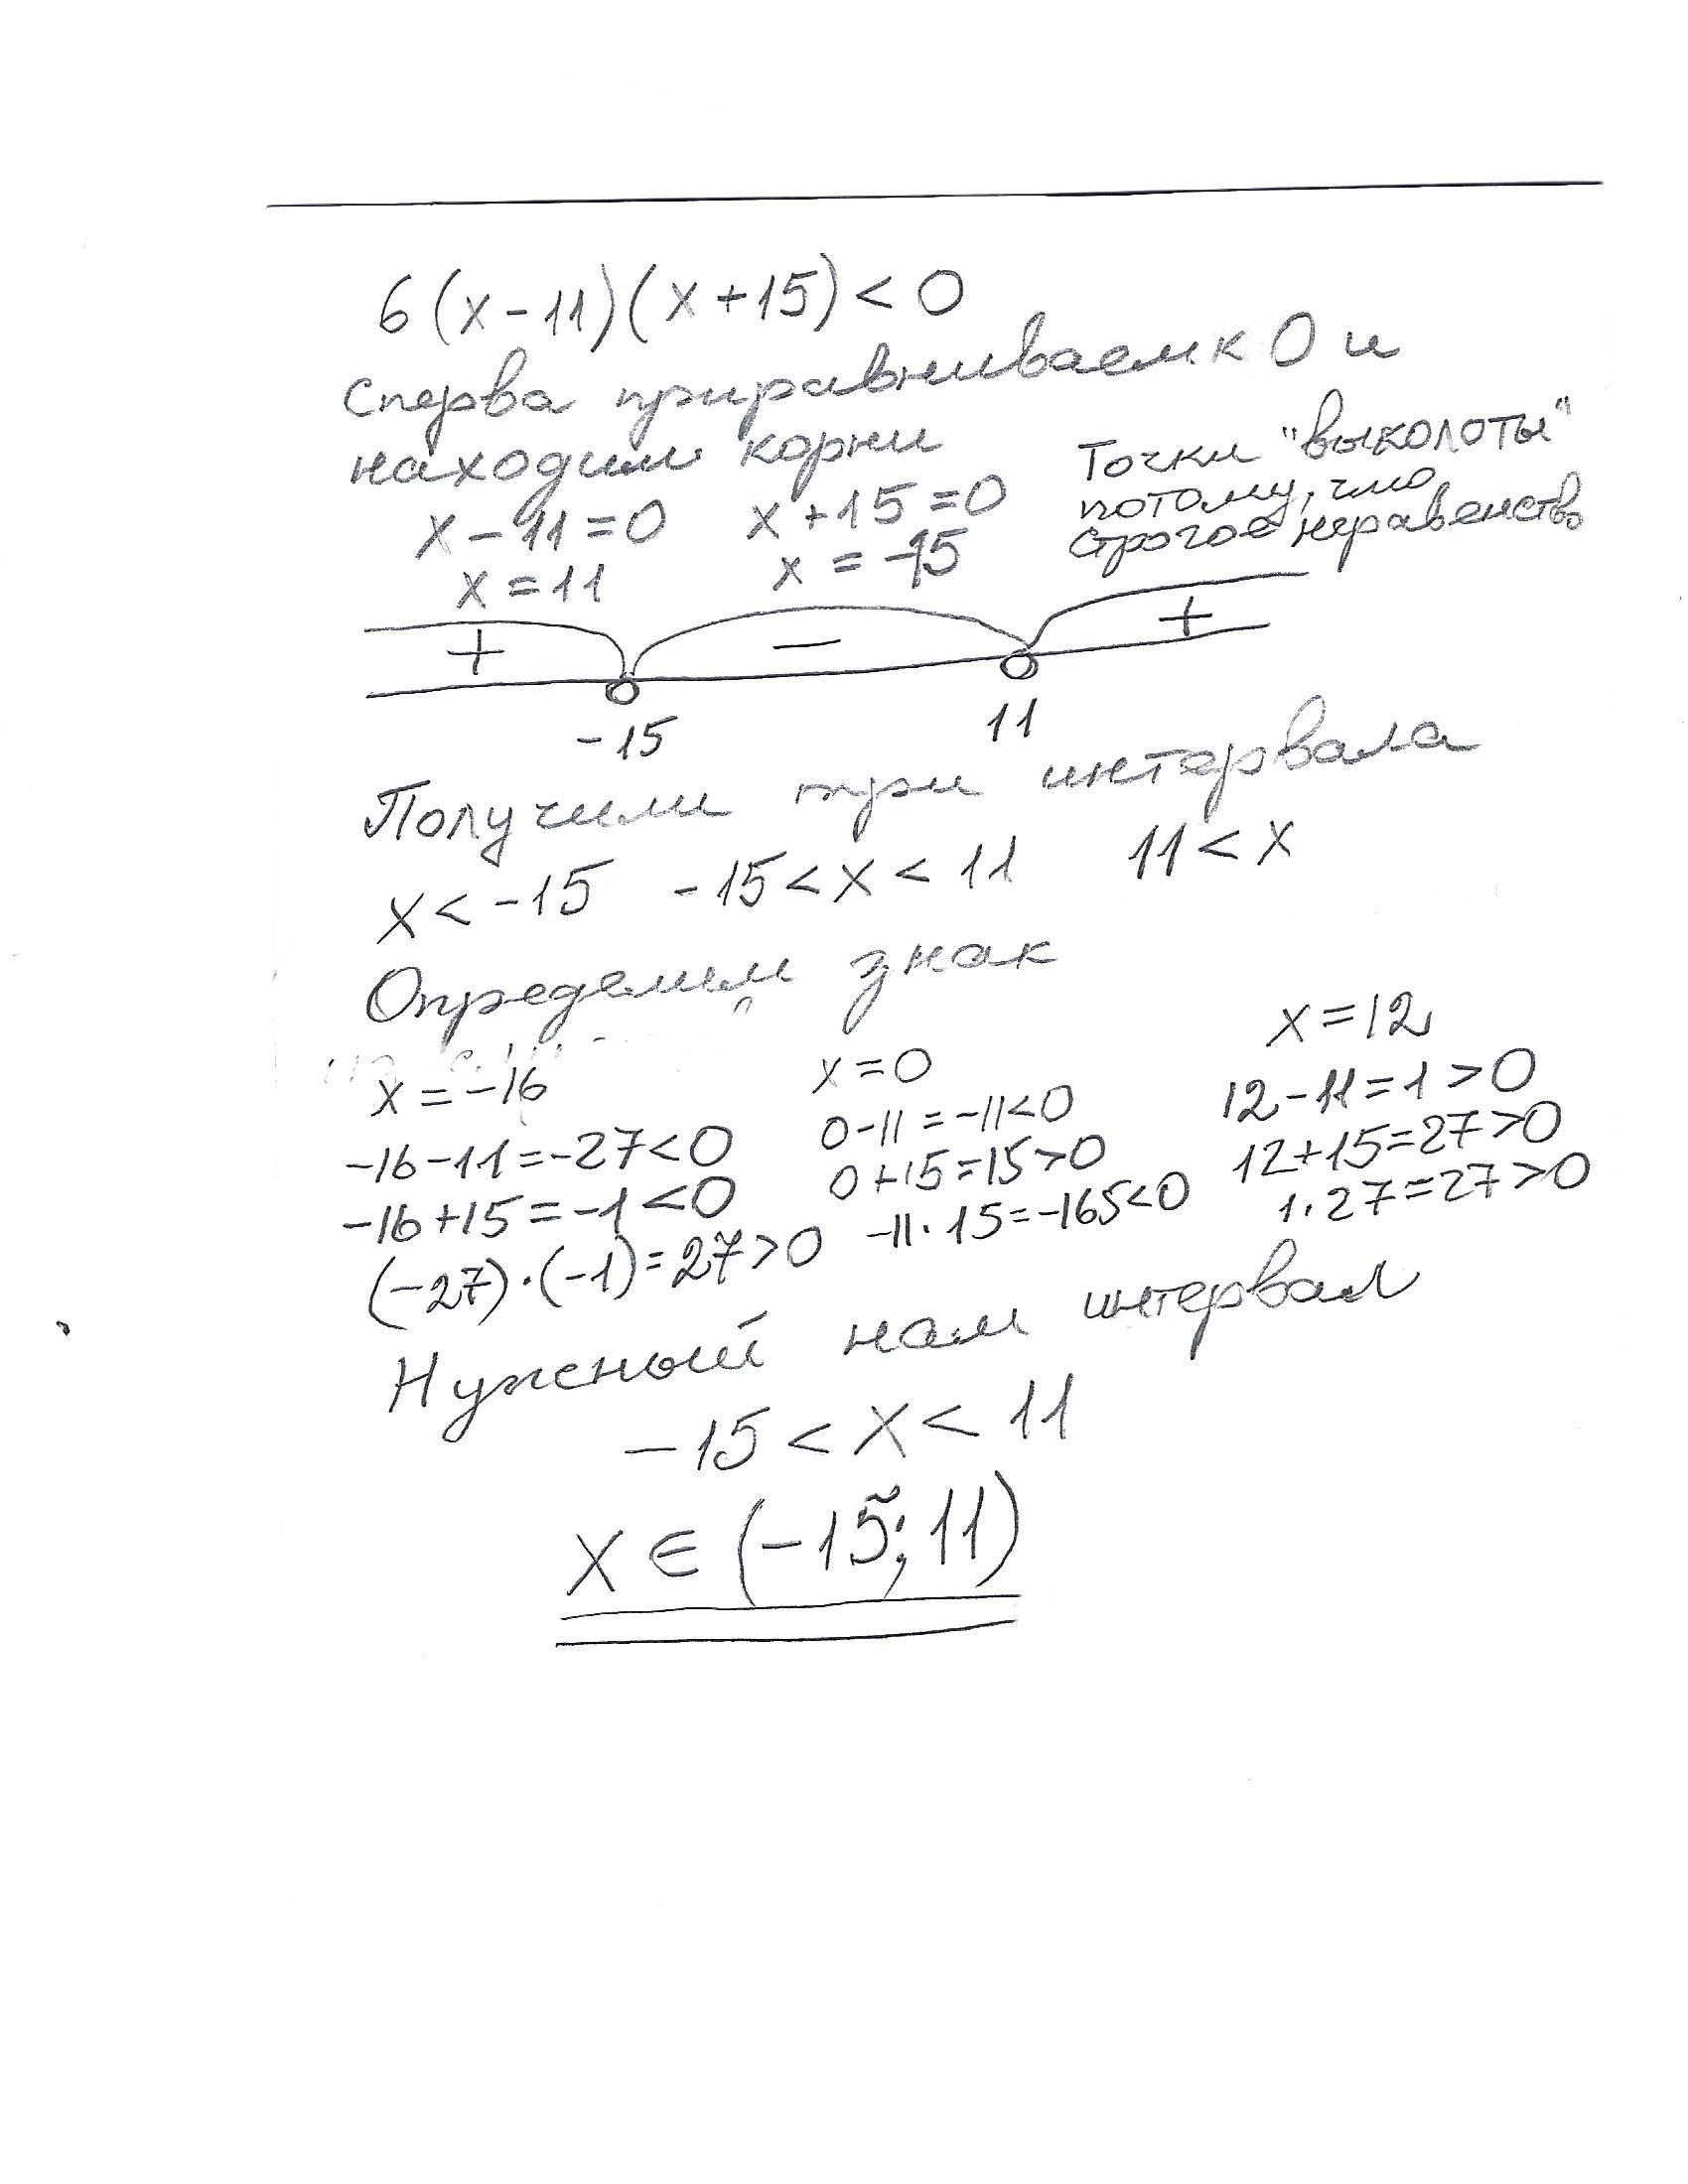 6(x-11)(x+15)<0
Сперва приравниваем к 0 и
находим корни
x-11=0 x+15=0
x=11 x=-15
Точки "выколоты"
потому, что
строгое неравенство
+ - +
-15 11
Получили три интервала
x<-15 -15<x<11 11<x
Определим знак
x=-16
-16-11=-27<0
-16+15=-1<0
(-27)·(-1)=27>0
x=0
0-11=-11<0
0+15=15>0
-11·15=-165<0
x=12
12-11=1>0
12+15=27>0
1·27=27>0
Нужный нам интервал
-15<x<11
x∈(-15;11)